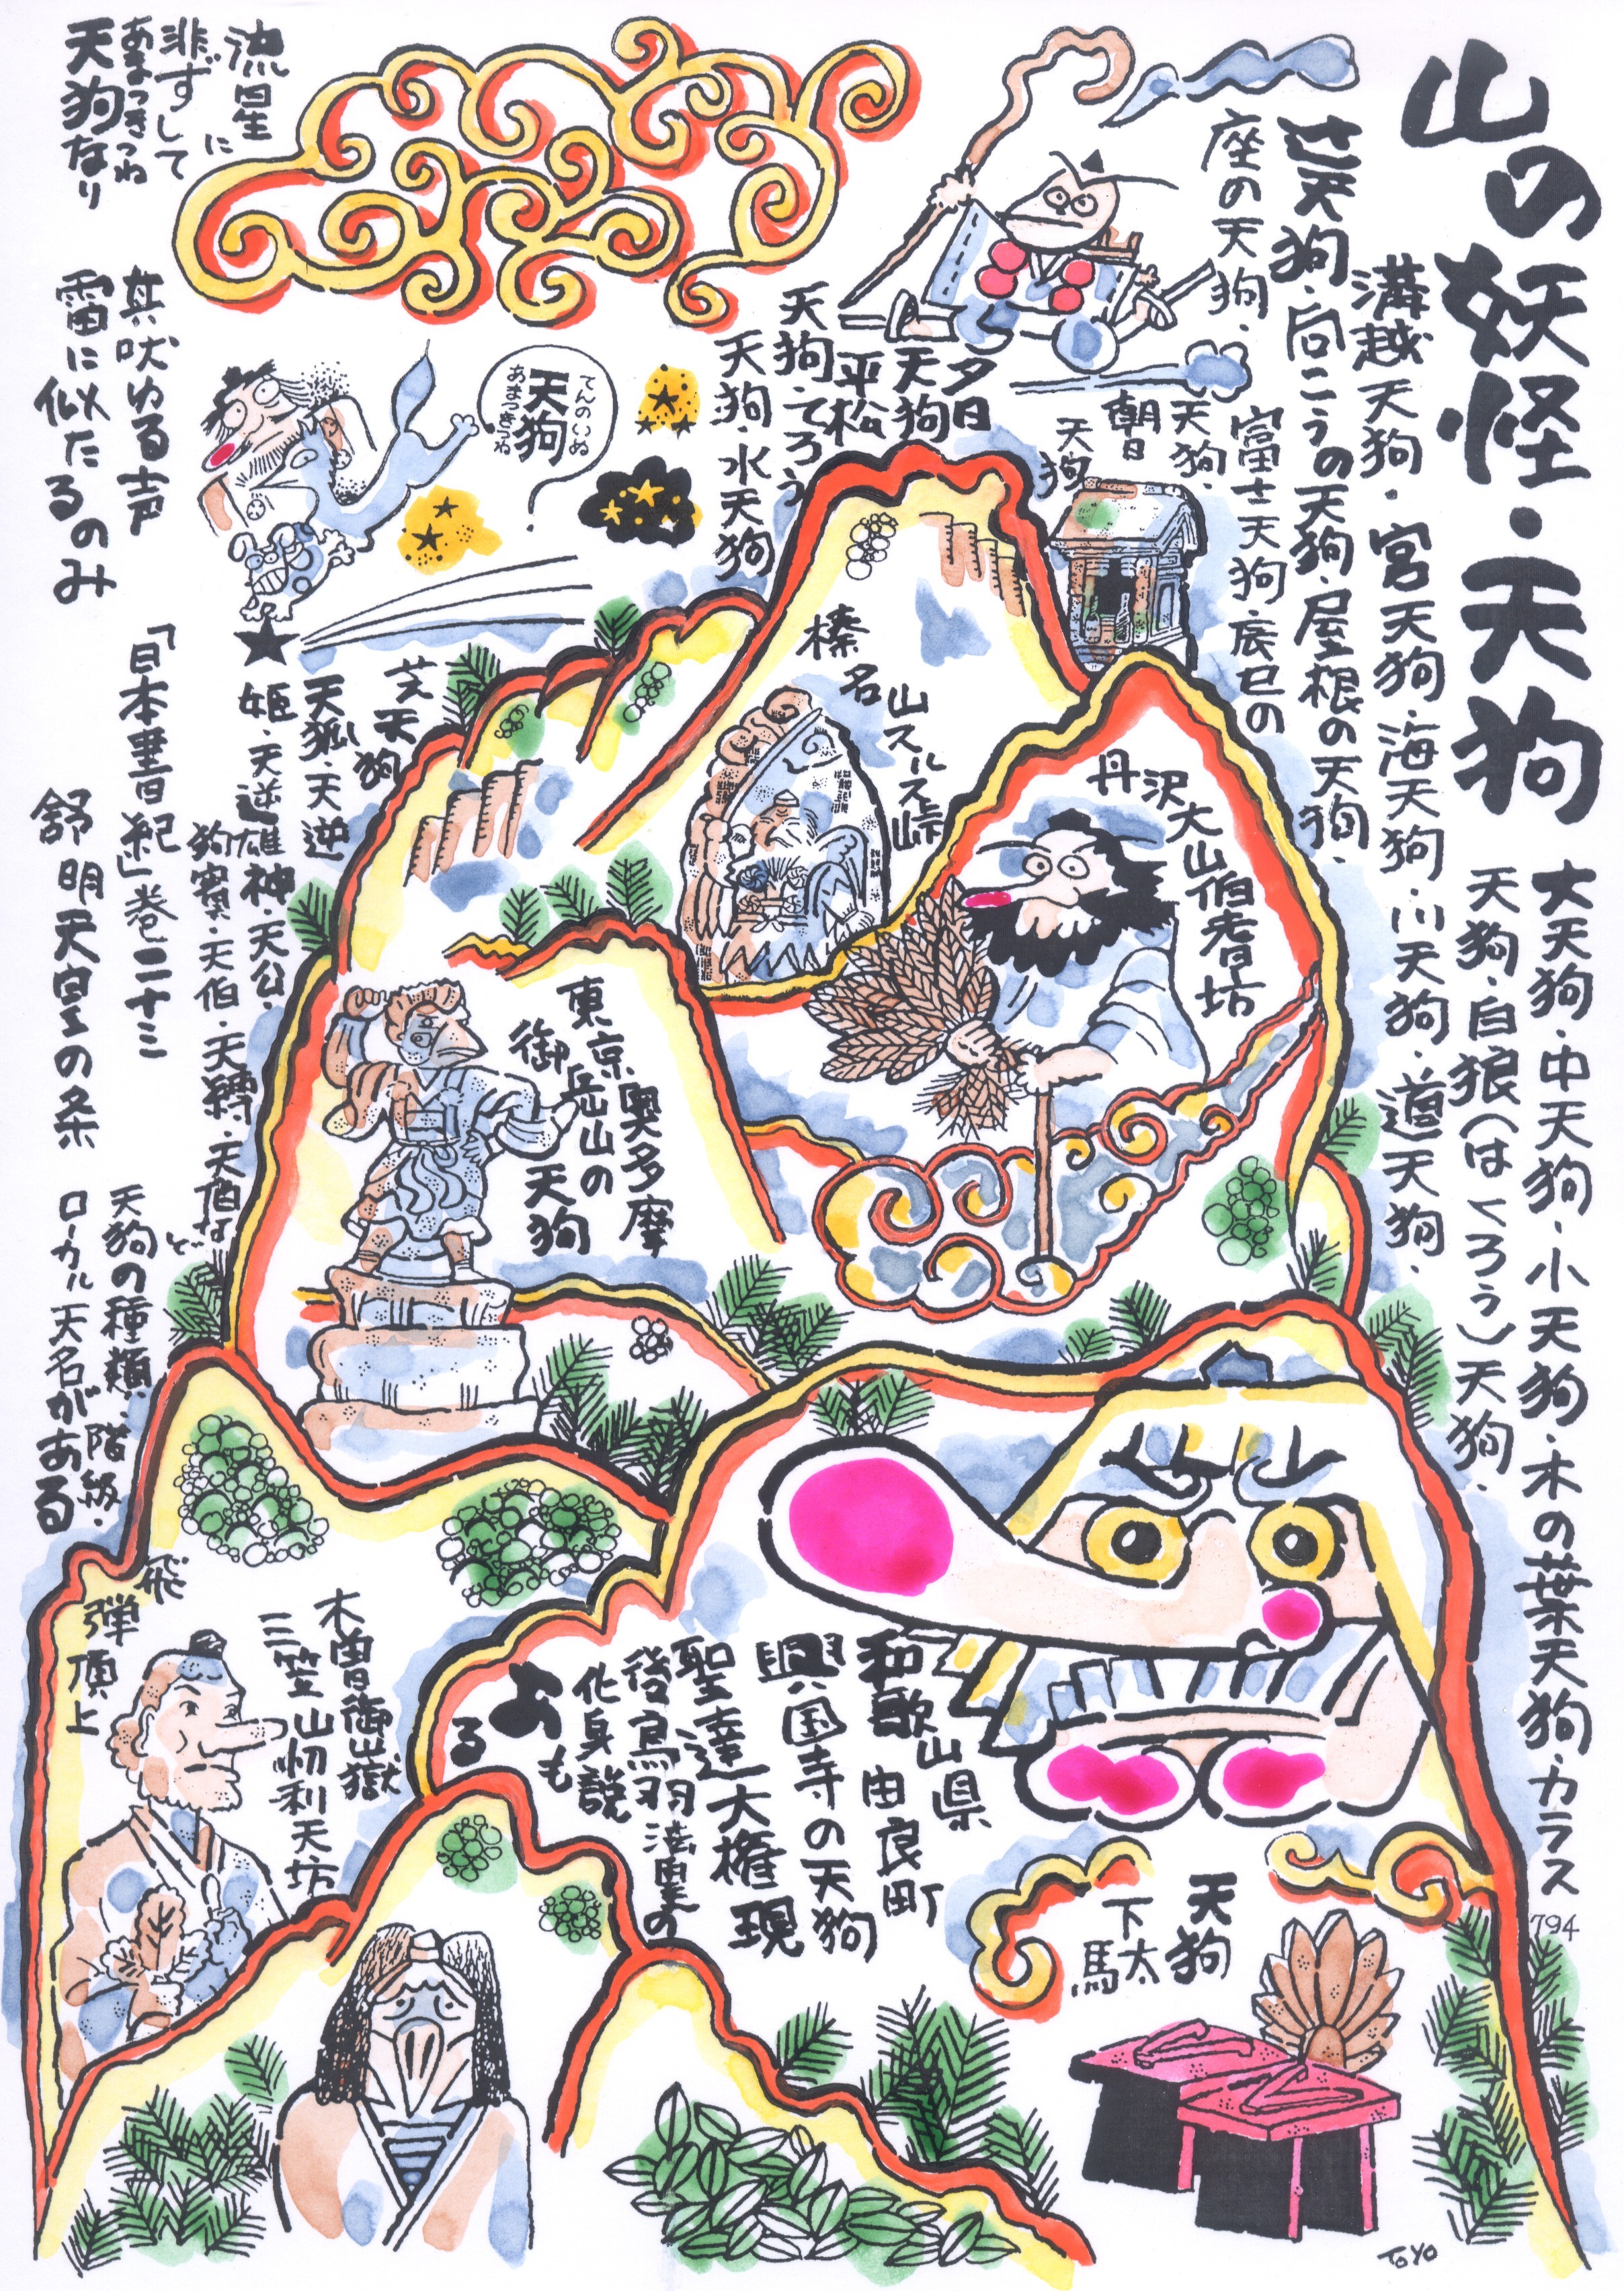 山の妖怪・天狗
大天狗・中天狗・小天狗・木の葉天狗・カラス
天狗・白狼(はくろう)天狗・
溝越天狗・宮天狗・海天狗・川天狗・道天狗・
辻天狗・向こうの天狗・屋根の天狗・
座の天狗・
富士天狗・辰巳の
天狗・
朝日
天狗
夕日
天狗
平松
天狗・てろう
天狗・水天狗
芝天狗
天狐・天逆
姫・天逆雄神・天公・
狗賓・天伯・天縛・天伯など
天狗の種類・階級・
ローカル天名がある
流星に
非ずして
あまつきつね
天狗なり
其吠ゆる声
雷に似たるのみ
「日本書紀」巻二十三
舒明天皇の条
てんのいぬ
天狗
あまつきつね
?
榛名
山スルス峠
丹沢大山伯耆坊
東京奥多摩
御岳山の
天狗
飛弾頂上
木曽御嶽
三笠山忉利天坊
和歌山県
由良町
興国寺の天狗
聖達大権現
後鳥羽法皇の
化身説
もある
天狗
下太
馬
794
TOYO